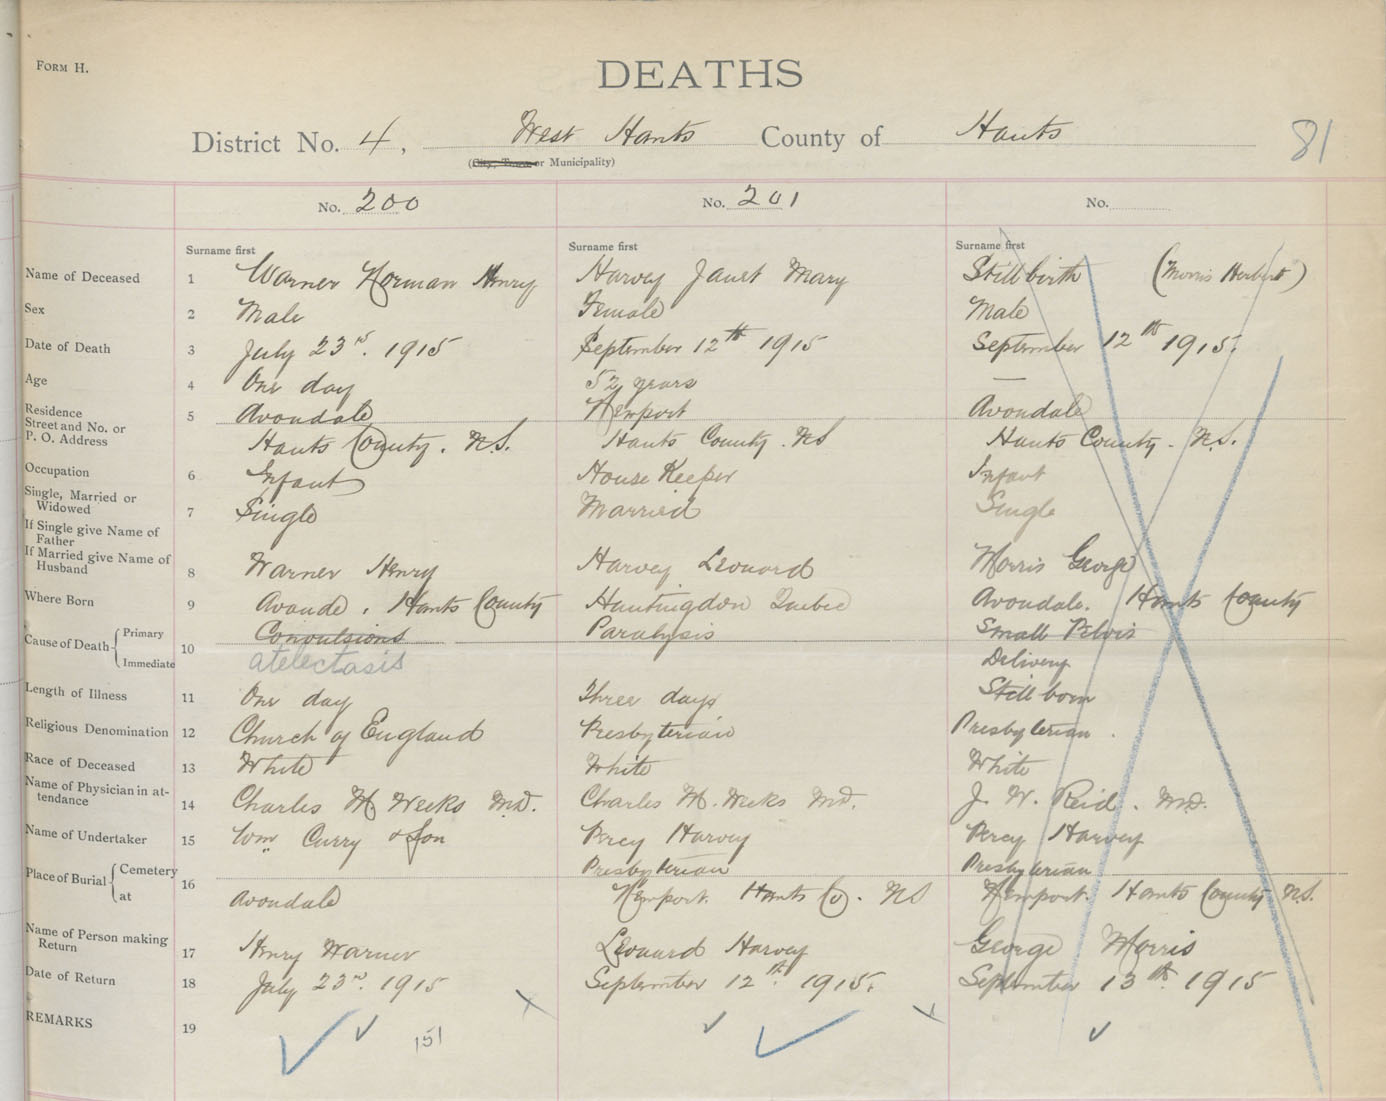 FORM H.
DEATHS
81
District No. 4, West Hants County of Hants
(City, Town or Municipality)
No. 200
No. 201
No.
Surname first
Surname first
Surname first
Name of Deceased
1
Warner Norman Henry
Harvey Janet Mary
Stillbirth (Morris Herbert)
Sex
2
Male
Female
Male
Date of Death
3
July 23rd. 1915
September 12th 1915
September 12th 1915.
Age
4
One day
52 years
—
Residence
Street and No. or
P. O. Address
5
Avondale
Hants County. N.S.
Newport
Hants County. NS
Avondale
Hants County. N.S.
Occupation
6
Infant
House Keeper
Infant
Single, Married or
Widowed
7
Single
Married
Single
If Single give Name of
Father
If Married give Name of
Husband
8
Warner Henry
Harvey Leonard
Morris George
Where Born
9
Avonde. Hants County
Huntingdon Quebec
Avondale. Hants County
Cause of Death { Primary
Immediate
10
Convulsions
atelectasis
Paralysis
Small Pelvis
Delivery
Length of Illness
11
One day
Three days
Still born
Religious Denomination
12
Church of England
Presbyterian
Presbyterian.
Race of Deceased
13
White
White
White
Name of Physician in at-
tendance
14
Charles M Weeks M.D.
Charles M. Weeks M.D.
J. W. Reid. M.D.
Name of Undertaker
15
Wm Curry & Son
Percy Harvey
Percy Harvey
Place of Burial { Cemetery
at
16
Avondale
Presbyterian
Newport. Hants Co. NS
Presbyterian
Newport. Hants County N.S.
Name of Person making
Return
17
Henry Warner
Leonard Harvey
George Morris
Date of Return
18
July 23rd. 1915
September 12th. 1915.
September 13th. 1915
REMARKS
19
151